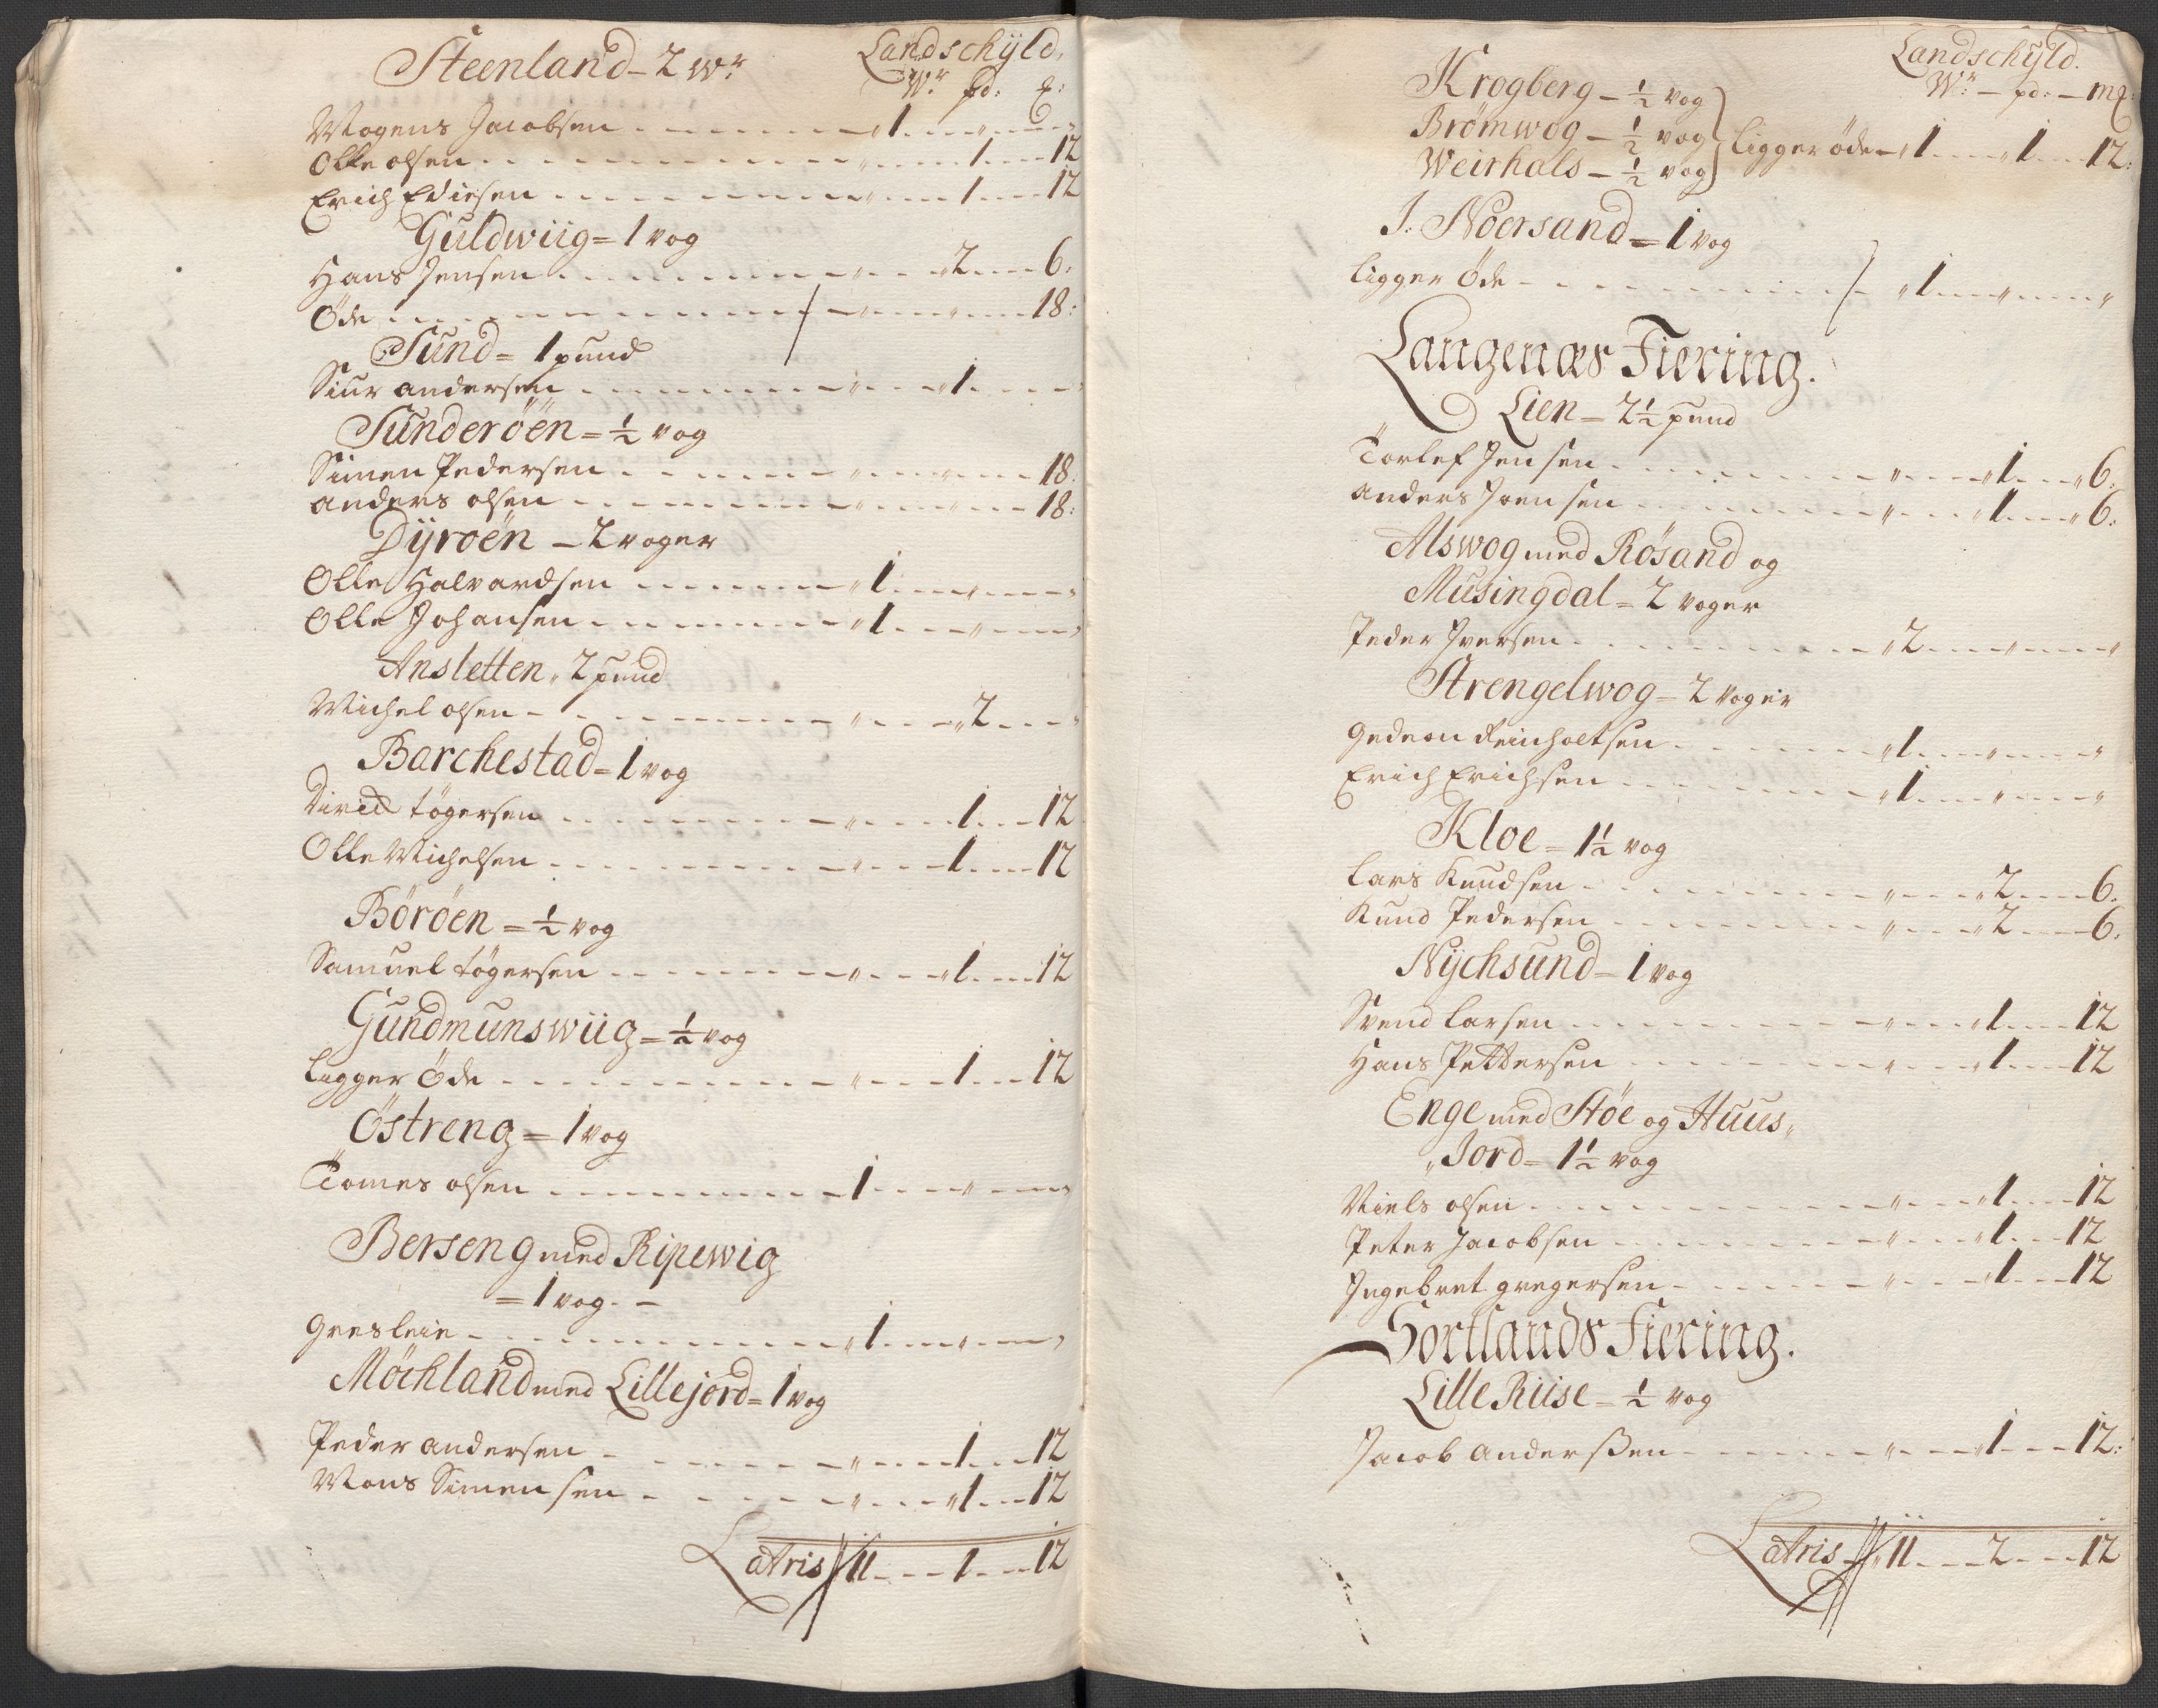 Steenland - 2 Wr.
Landschÿld.
Wr. pd: ℔:
Mogens Jacobsen - - - " 1 - - " - - "
Olle olsen - - - " - - 1 - - 12
Erich Edisen - - - " - - 1 - - 12
Guldwiig = 1 vog
Hans Jensen - - - " - - 2 - - 6.
Öde - - - " - - " - - 18:
Sund = 1 pund
Siur andersen - - - " - - 1 - - "
Sunderöen = ½ vog
Simen Pedersen - - - " - - " - - 18.
anders olsen - - - " - - " - - 18:
Dÿroën - 2 voger
Olle Halvardsen - - - " 1 - - " - - "
Olle Johansen - - - " 1 - - " - - "
Ansletten " 2 pund
Michel olsen - - - " - - " 2 - - "
Barchestad = 1 vog
Divert tögersen - - - " - - 1 - - 12
Olle Michelsen - - - " - - 1 - - 12
Böröen = ½ vog
Samuel tögersen - - - " - - " 1 - - 12
Gundmunswiig = ½ vog
ligger Öde - - - " - - 1 - - 12
Östreng = 1 vog
Tomes olsen - - - 1 - - " - - "
Berseng med Ripewig
= 1 vog. -
gresleie - - - " 1 - - " - - "
Möchland med Lillejord = 1 vog
Peder andersen - - - " - - 1 - - 12
Mons Simensen - - - " - - " 1 - - 12
Latris 11 - - 1 - - 12
Landschÿld.
Wr: - pd: - m℔:
Krogberg - ½ vog
Brömwog - ½ vog ligger öde - " 1 - - " 1 - - 12:
Weirhals - ½ vog
I: Noersand = 1 vog
ligger Öde - - - " 1 - - " - - "
Langenæs Fiering.
Lien = 2½ pund
Torlef Jensen - - - " - - " 1 - - " 6.
anders Joensen - - - " - - " 1 - - " 6:
Alswog med Rösand og
Musingdal = 2 voger
Peder Iversen - - - " 2 - - " - - "
Strengelwog = 2 voger
gedeon Reinholtsen - - - " 1 - - " - - "
Erich Erichsen - - - " 1 - - " - - "
Kloe = 1½ vog
Lars Knudsen - - - " - - " 2 - - 6.
Knud Pedersen - - - " - - " 2 - - 6.
Nÿchsund = 1 vog
Svend Larsen - - - " - - " 1 - - 12
Hans Pettersen - - - " - - " 1 - - 12
Enge med Stöe og Huus "
" Jord = 1½ vog
Niels olsen - - - " - - " 1 - - 12
Peter Jacobsen - - - " - - " 1 - - 12
Ingebret gregersen - - - " - - " 1 - - 12
Sortlands Fiering.
Lille Riise - ½ vog
Jacob anderßen - - - " - - " 1 - - 12:
Latris " 11 - - 2 - - 12